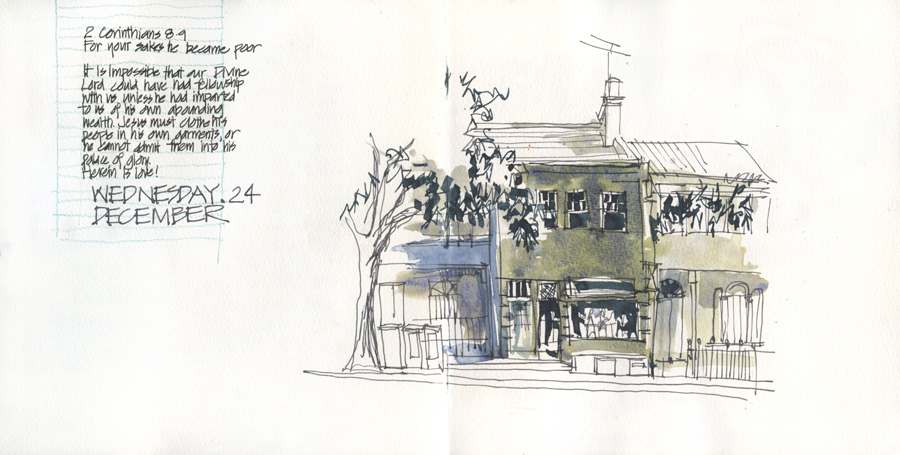 2 Corinthians 8.9
For your sakes he became poor
It is impossible that our Divine
Lord could have had fellowship
with us unless he had imparted
to us of his own abounding
wealth. Jesus must clothe his
people in his own garments, or
he cannot admit them into his
palace of glory.
Herein is love!
WEDNESDAY. 24
DECEMBER